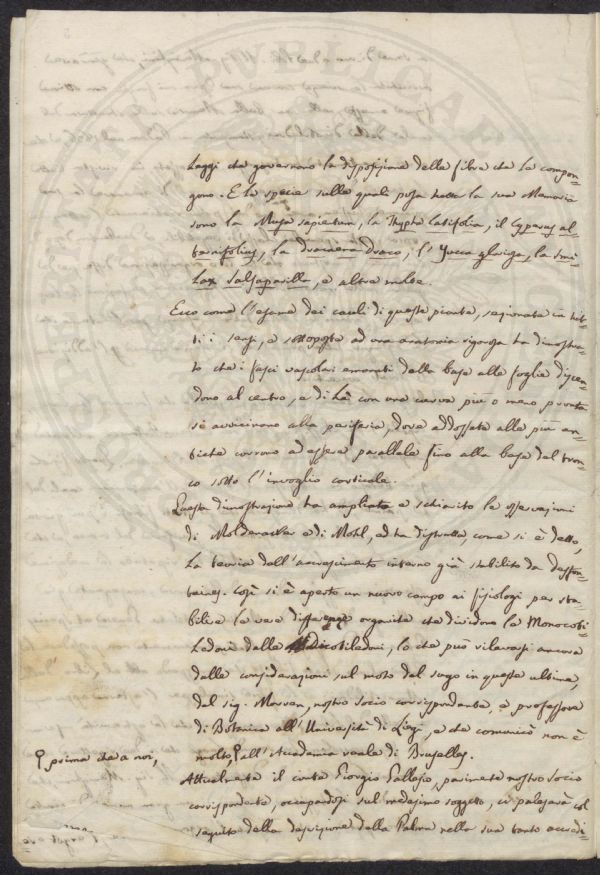 leggi che governano la disposizione delle fibre che le compon-
gono. E le specie sulle quali posa tutta la sua Memoria
sono la Musa sapientum, la Thypha latifolia, il Cyperus al-
ternifolius, la Dracaena Draco, l'Yucca gloriosa, la Smi-
lax Salsaparilla, e altre molte.
Ecco come l'esame dei cauli di queste piante, sezionate in tut-
ti i sensi, e sottoposte ad una anatomia rigorosa ha dimostra-
to che i fasci vascolari emanati dalla base alle foglie discen-
dono al centro, e di là con una curva più o meno pronta
si avvicinano alla periferia, dove addossate alle più an-
tiche corrono ad essere parallele fino alla base del tron-
co sotto l'invoglio corticale.
Questa dimostrazione ha ampliate e schiarito le osservazioni
di Moldenawer e di Mohl, ed ha distrutta, come si è detto,
la teoria dell'accrescimento interno già stabilito da Desfon-
taines. Così si è aperto un nuovo campo ai fisiologi per sta-
bilire le vere differenze organiche che dividono le Monocoti-
ledoni dalle Dicotiledoni, lo che può rilevarsi ancora
dalle considerazioni sul moto del sugo in queste ultime,
del sig. Morren, nostro socio corrispondente, e professore
di Botanica all'Università di Liegi, e che comunicò non è
molto, all'Accademia reale di Bruxelles.
prima che a noi,
Attualmente il conte Giorgio Gallesio, parimente nostro socio
corrispondente, occupandosi sul medesimo soggetto, ci paleserà col
seguito della descrizione della Palma nella sua tanto accredi-